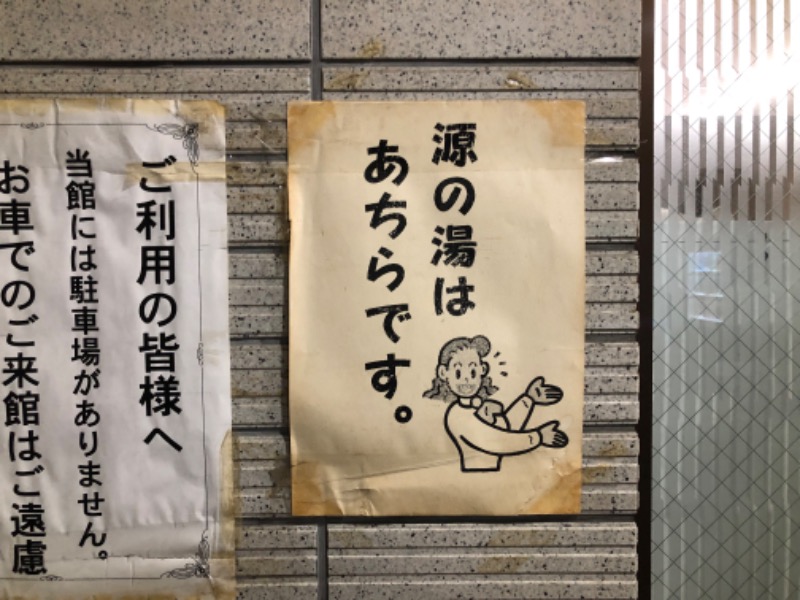 源の湯は
あちらです。
ご利用の皆様へ
当館には駐車場がありません。
お車でのご来館はご遠慮